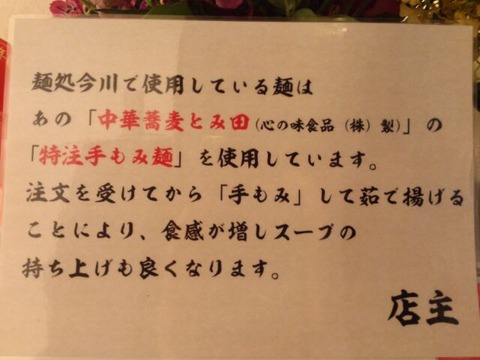 麺処今川で使用している麺は
あの「中華蕎麦とみ田(心の味食品(株)製)」の
「特注手もみ麺」を使用しています。
注文を受けてから「手もみ」して茹で揚げる
ことにより、食感が増しスープの
持ち上げも良くなります。
店主